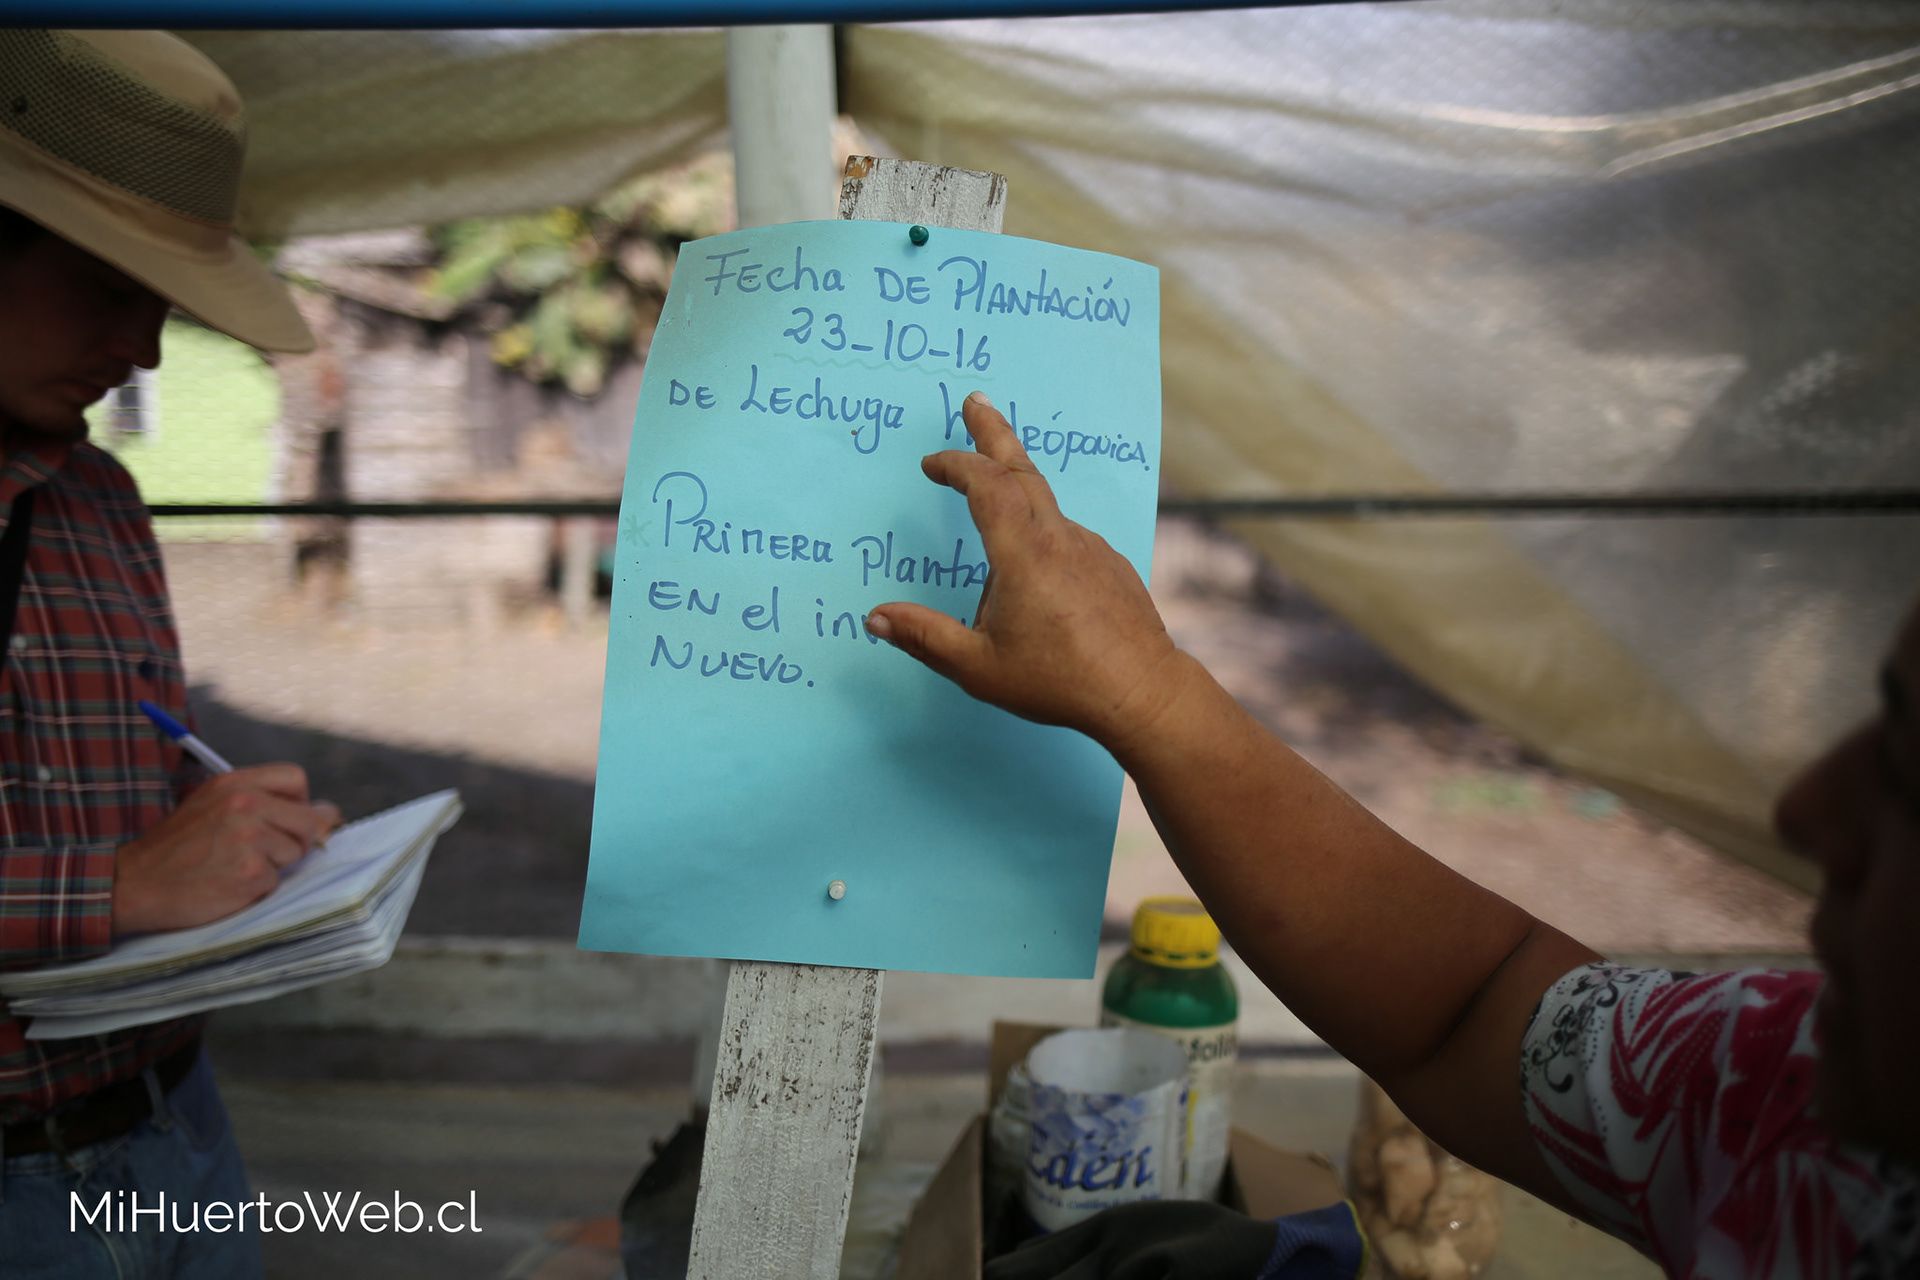 Fecha DE Plantación
23-10-16
DE Lechuga hidropónica.
* Primera Planta
EN el inv
Nuevo.
Edén
MiHuertoWeb.cl